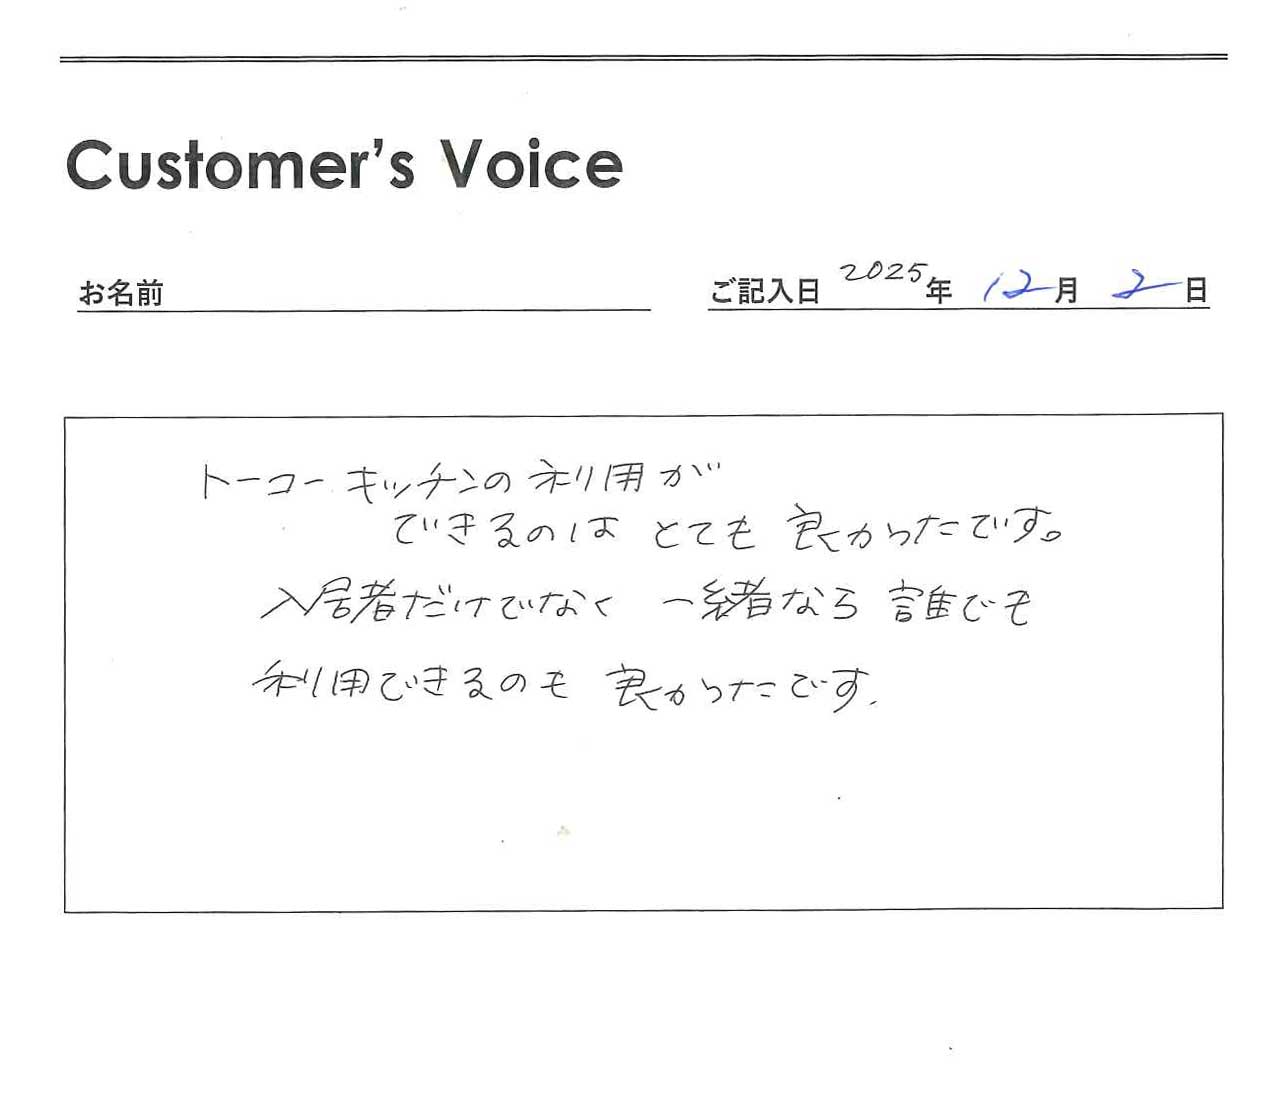 Customer's Voice
お名前
ご記入日 2025年 12月 2日
トーコーキッチンの利用が
できるのは とても 良かったです。
入居者だけでなく 一緒なら 誰でも
利用できるのも 良かったです.